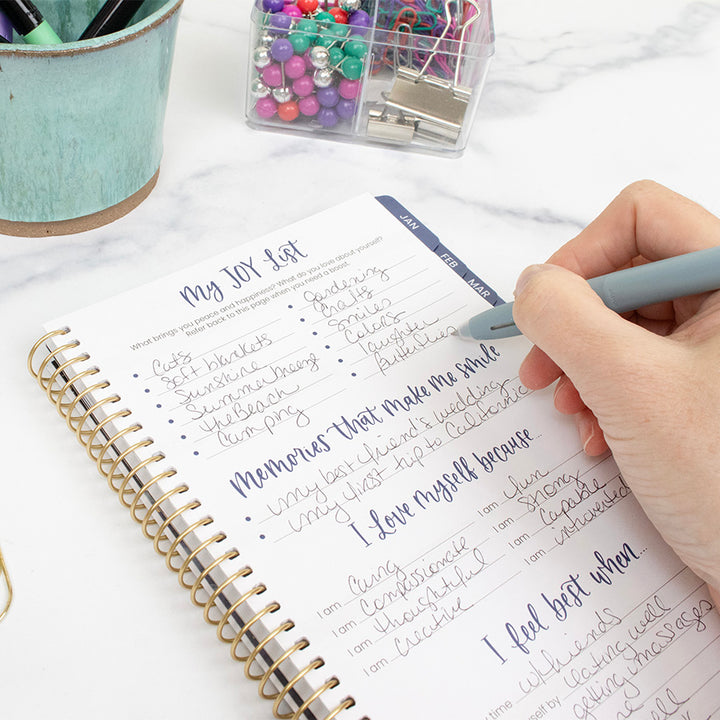 My JOY List
What brings you peace and happiness? What do you love about yourself?
Refer back to this page when you need a boost.
Cats
Soft blankets
Sunshine
Summer breeze
the Beach
Camping
Gardening
Crafts
Smiles
Colors
Laughter
Butterflies
JAN
FEB
MAR
Memories that make me smile
my best friend's wedding
my first trip to California
I love myself because...
I am caring
I am compassionate
I am thoughtful
I am creative
I am fun
I am strong
I am capable
I am introverted
I feel best when...
time with friends
myself by eating well
getting massages